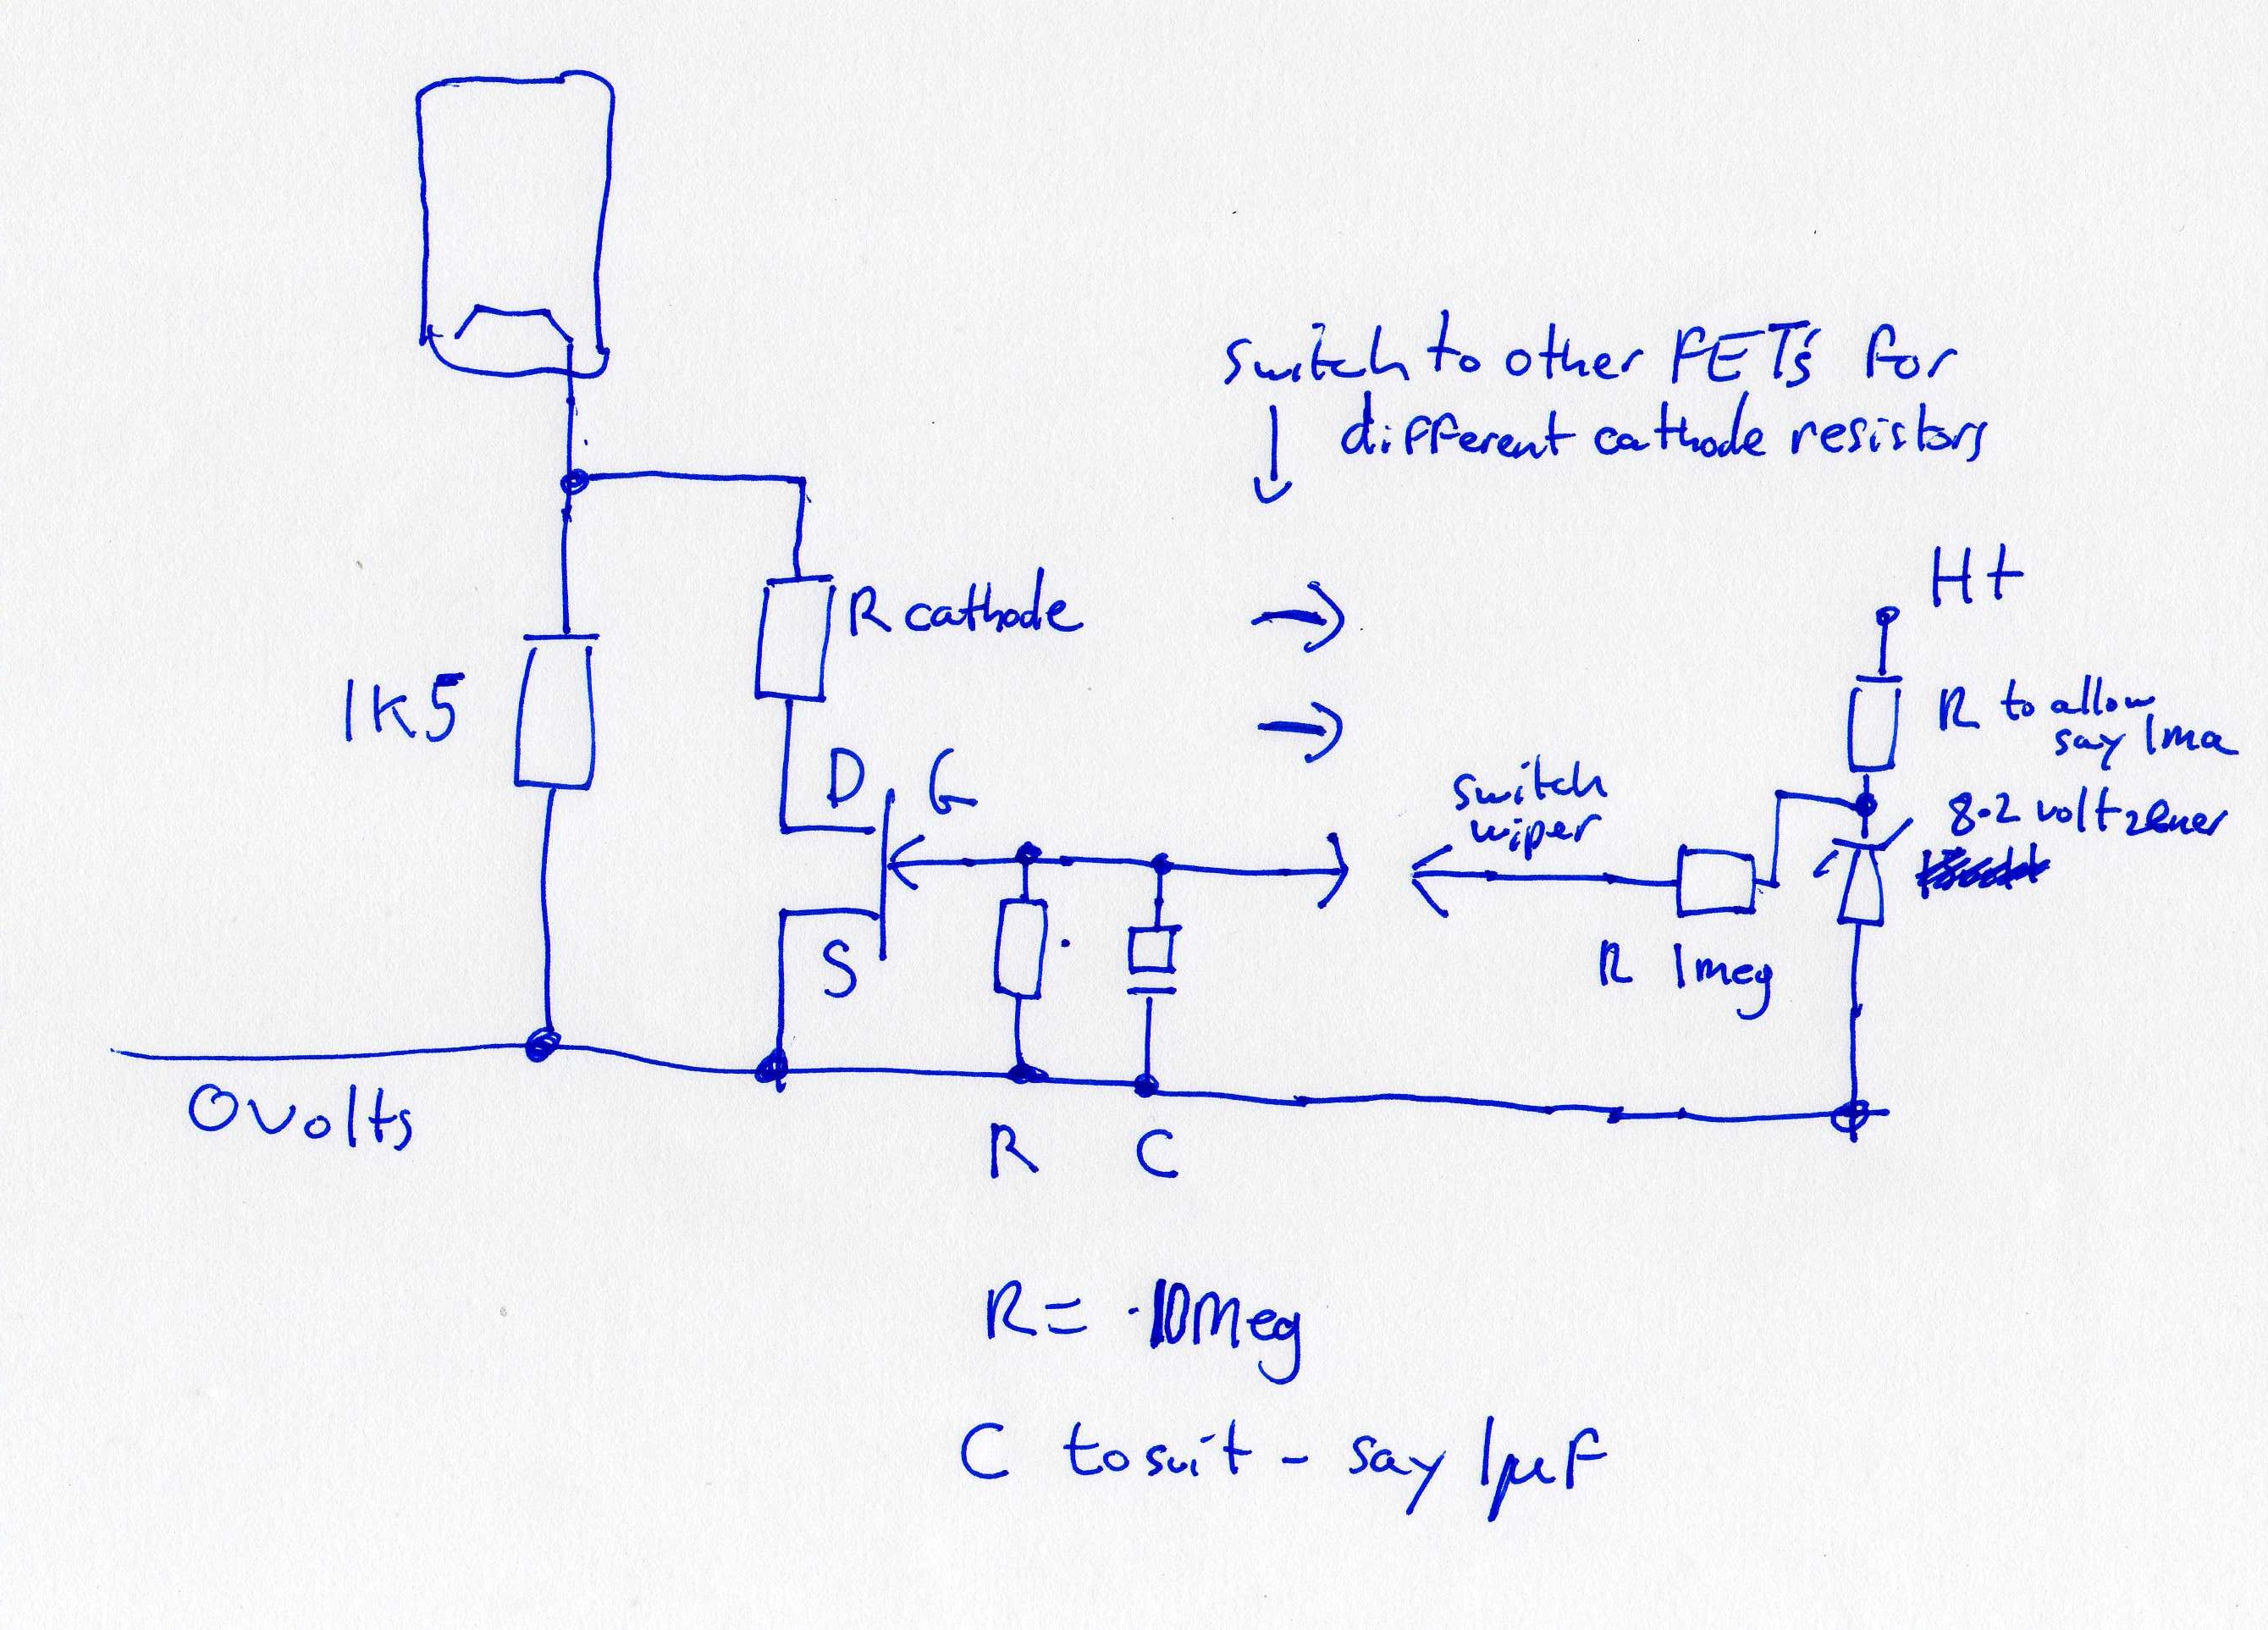 switch to other FET's for
different cathode resistors
Ht
R cathode
1K5
R to allow
say 1ma
D G
switch
wiper
8.2 volt zener
S
R 1meg
0volts
R C
R = 10Meg
C to suit - say 1µF